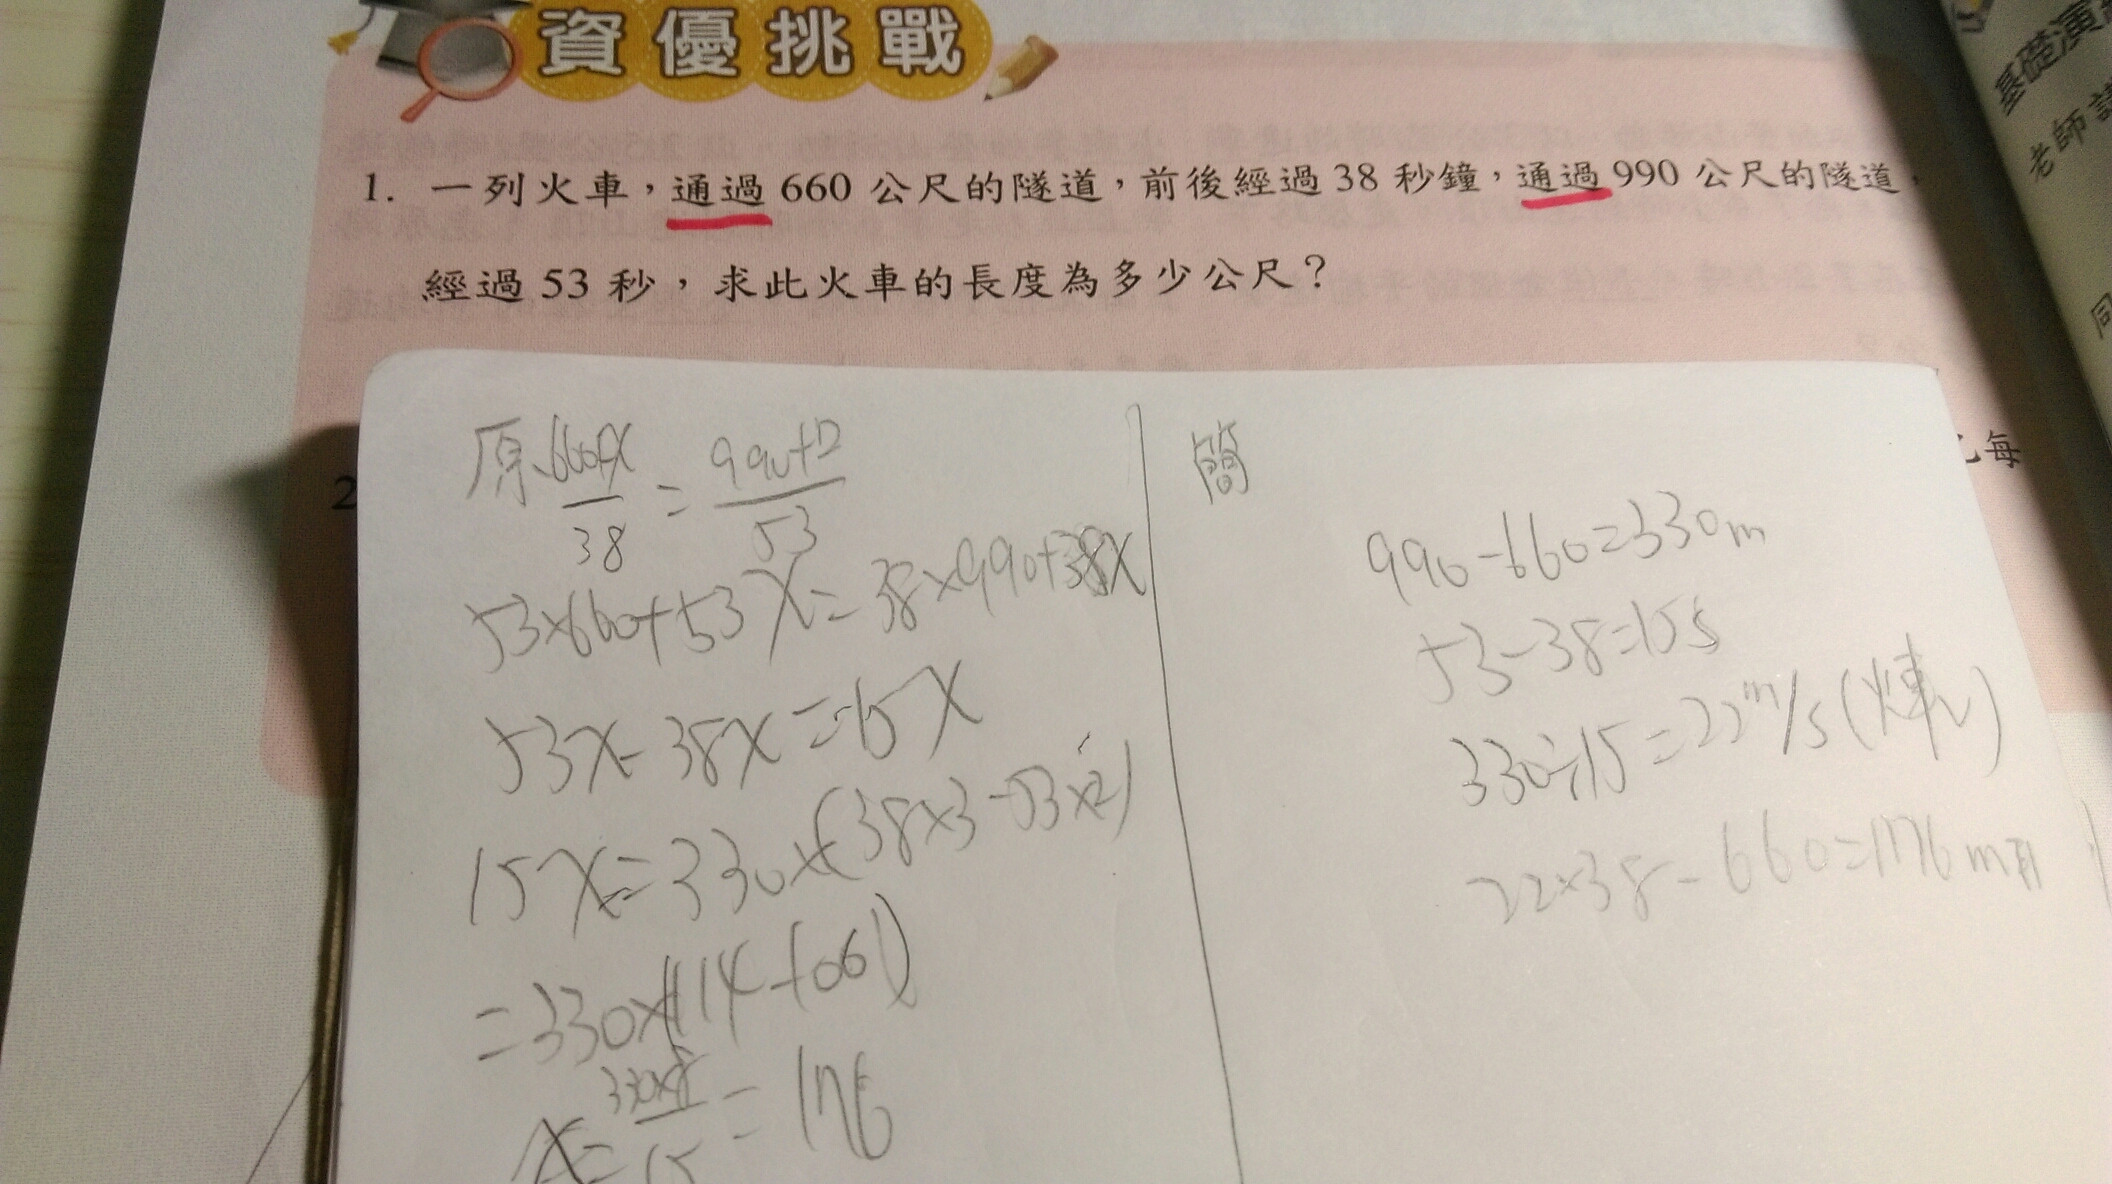 資優挑戰
1. 一列火車，通過 660 公尺的隧道，前後經過 38 秒鐘，通過 990 公尺的隧道，
經過 53 秒，求此火車的長度為多少公尺？
2
每
基礎演
老師講
同
原 660+x/38 = 990+x/53
53×660+53x=38×990+38x
53x-38x=15x
15x=330×(38×3-53×2)
=330×(114-106)
x=330×8/15=176
簡
990-660=330m
53-38=15s
330÷15=22m/s(火車v)
22×38-660=176m